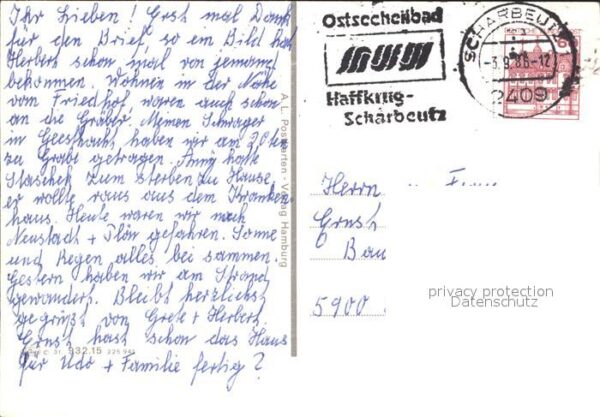 Ihr Lieben! Erst mal Dank
für den Brief, so ein Bild hat
Herbert schon mal von jemand
bekommen. Wohnen in der Nähe
vom Friedhof, waren auch schon
an die Gräber. Meinen Schwager
in Geesthacht, haben wir am 20ten
zu Grabe getragen. Änny holte
Staschek zum sterben zu Hause,
er wollte raus aus dem Kranken
haus. Heute waren wir nach
Neustadt + Plön gefahren. Sonne
und Regen alles bei sammen.
Gestern haben wir am Strand
gewandert. Bleibt herzlichst
gegrüßt von Grete + Herbert.
Ernst hast schon das Haus
für Udo + Familie fertig?
932.15
A.L. Postkarten-Verlag Hamburg
Ostseeheilbad
Haffkrug-
Scharbeutz
SCHARBEUTZ 1
-3.9.86-12
2409
Herrn
Ernst
Bau
5900
privacy protection
Datenschutz